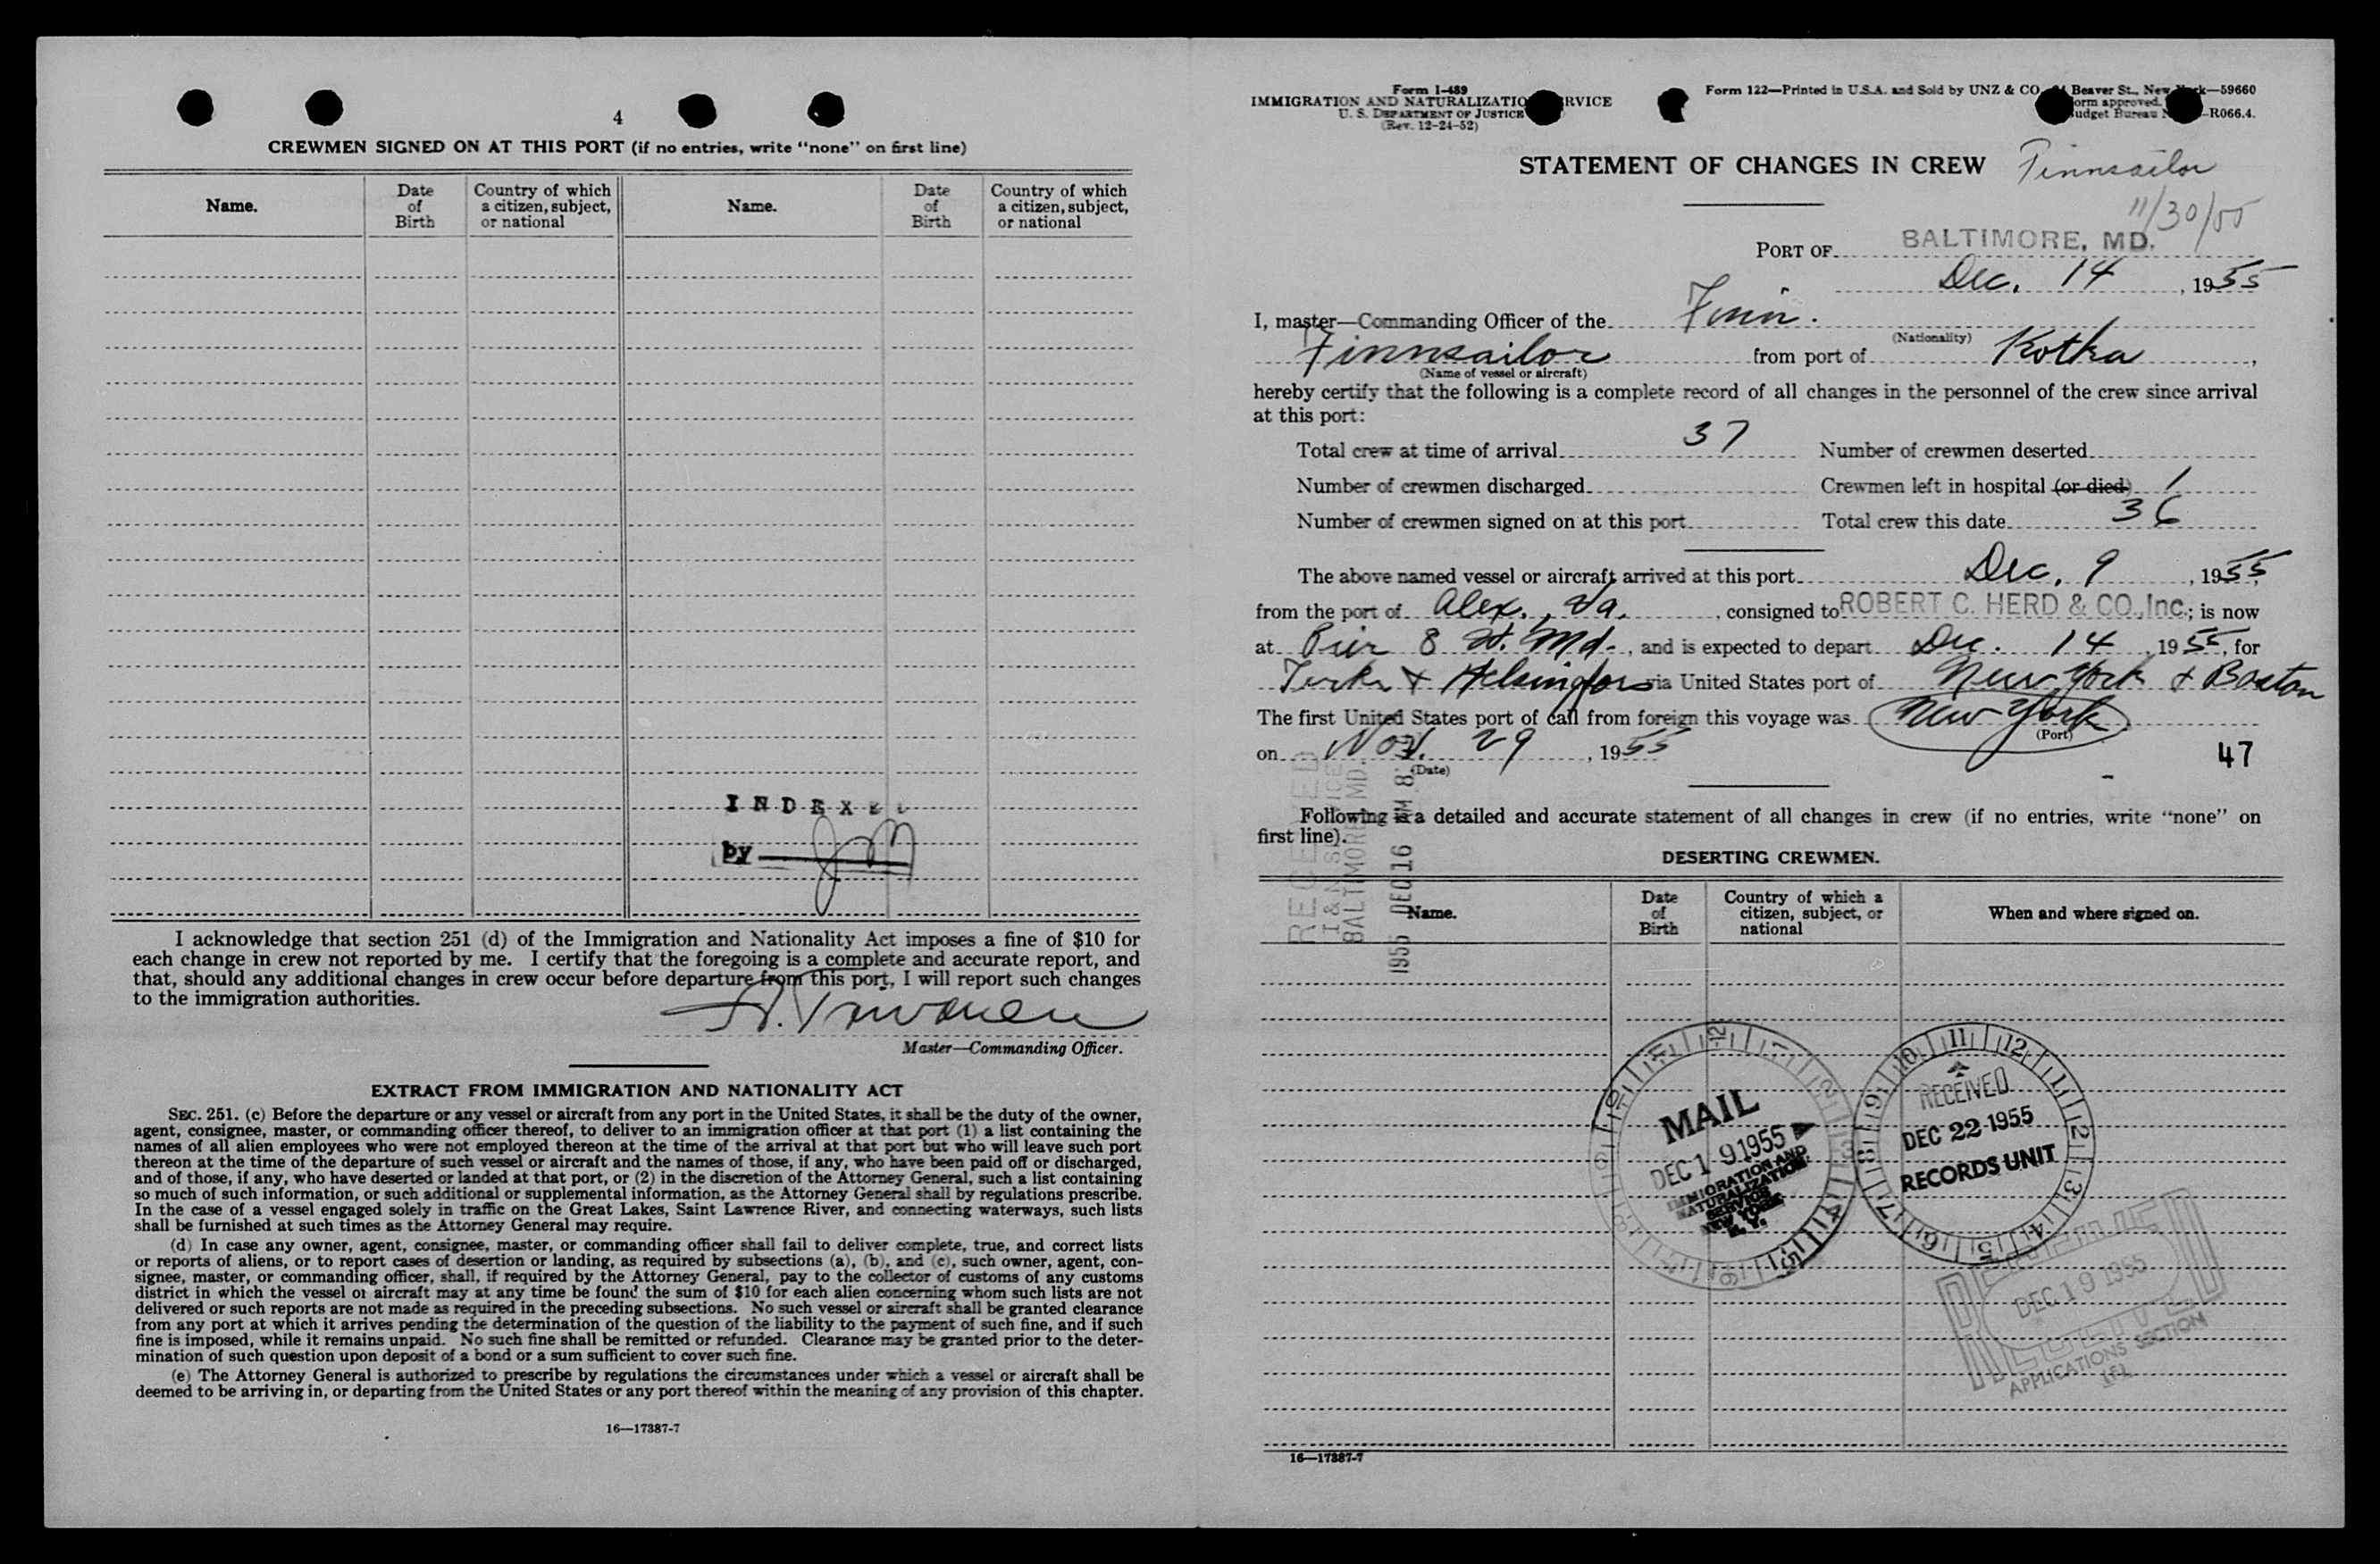 4
CREWMEN SIGNED ON AT THIS PORT (if no entries, write "none" on first line)
Name.
Date of Birth
Country of which a citizen, subject, or national
Name.
Date of Birth
Country of which a citizen, subject, or national
INDEXE
by
I acknowledge that section 251 (d) of the Immigration and Nationality Act imposes a fine of $10 for
each change in crew not reported by me. I certify that the foregoing is a complete and accurate report, and
that, should any additional changes in crew occur before departure from this port, I will report such changes
to the immigration authorities.
Master—Commanding Officer.
EXTRACT FROM IMMIGRATION AND NATIONALITY ACT
SEC. 251. (c) Before the departure or any vessel or aircraft from any port in the United States, it shall be the duty of the owner,
agent, consignee, master, or commanding officer thereof, to deliver to an immigration officer at that port (1) a list containing the
names of all alien employees who were not employed thereon at the time of the arrival at that port but who will leave such port
thereon at the time of the departure of such vessel or aircraft and the names of those, if any, who have been paid off or discharged,
and of those, if any, who have deserted or landed at that port, or (2) in the discretion of the Attorney General, such a list containing
so much of such information, or such additional or supplemental information, as the Attorney General shall by regulations prescribe.
In the case of a vessel engaged solely in traffic on the Great Lakes, Saint Lawrence River, and connecting waterways, such lists
shall be furnished at such times as the Attorney General may require.
(d) In case any owner, agent, consignee, master, or commanding officer shall fail to deliver complete, true, and correct lists
or reports of aliens, or to report cases of desertion or landing, as required by subsections (a), (b), and (c), such owner, agent, con-
signee, master, or commanding officer, shall, if required by the Attorney General, pay to the collector of customs of any customs
district in which the vessel or aircraft may at any time be found the sum of $10 for each alien concerning whom such lists are not
delivered or such reports are not made as required in the preceding subsections. No such vessel or aircraft shall be granted clearance
from any port at which it arrives pending the determination of the question of the liability to the payment of such fine, and if such
fine is imposed, while it remains unpaid. No such fine shall be remitted or refunded. Clearance may be granted prior to the deter-
mination of such question upon deposit of a bond or a sum sufficient to cover such fine.
(e) The Attorney General is authorized to prescribe by regulations the circumstances under which a vessel or aircraft shall be
deemed to be arriving in, or departing from the United States or any port thereof within the meaning of any provision of this chapter.
16—17387-7
Form I-489
IMMIGRATION AND NATURALIZATIO RVICE
U. S. DEPARTMENT OF JUSTICE
(Rev. 12-24-52)
Form 122—Printed in U.S.A. and Sold by UNZ & CO. Beaver St., New k—59660
orm approved.
udget Bureau —R066.4.
STATEMENT OF CHANGES IN CREW Finnsailor
11/30/55
PORT OF BALTIMORE, MD.
Dec. 14, 1955
I, master—Commanding Officer of the Finn.
(Nationality)
Finnsailor from port of Kotka,
(Name of vessel or aircraft)
hereby certify that the following is a complete record of all changes in the personnel of the crew since arrival
at this port:
Total crew at time of arrival 37 Number of crewmen deserted
Number of crewmen discharged Crewmen left in hospital (or died) 1
Number of crewmen signed on at this port Total crew this date 36
The above named vessel or aircraft arrived at this port Dec. 9, 1955,
from the port of Alex., Va., consigned to ROBERT C. HERD & CO., Inc.; is now
at Pier 8 Md., and is expected to depart Dec. 14 1955, for
Turku & Helsingfors via United States port of New York & Boston
The first United States port of call from foreign this voyage was New York
(Port)
on Nov. 29, 1955
(Date)
47
Following is a detailed and accurate statement of all changes in crew (if no entries, write "none" on
first line).
RECEIVED
I & N SERVICE
BALTIMORE MD.
1955 DEC 16 AM 8
DESERTING CREWMEN.
Name.
Date of Birth
Country of which a citizen, subject, or national
When and where signed on.
MAIL
DEC 19 1955
IMMIGRATION AND
NATURALIZATION
SERVICE
NEW YORK
N. Y.
RECEIVED
DEC 22 1955
RECORDS UNIT
RECEIVED
DEC 19 1955
APPLICATIONS SECTION
16—17387-7